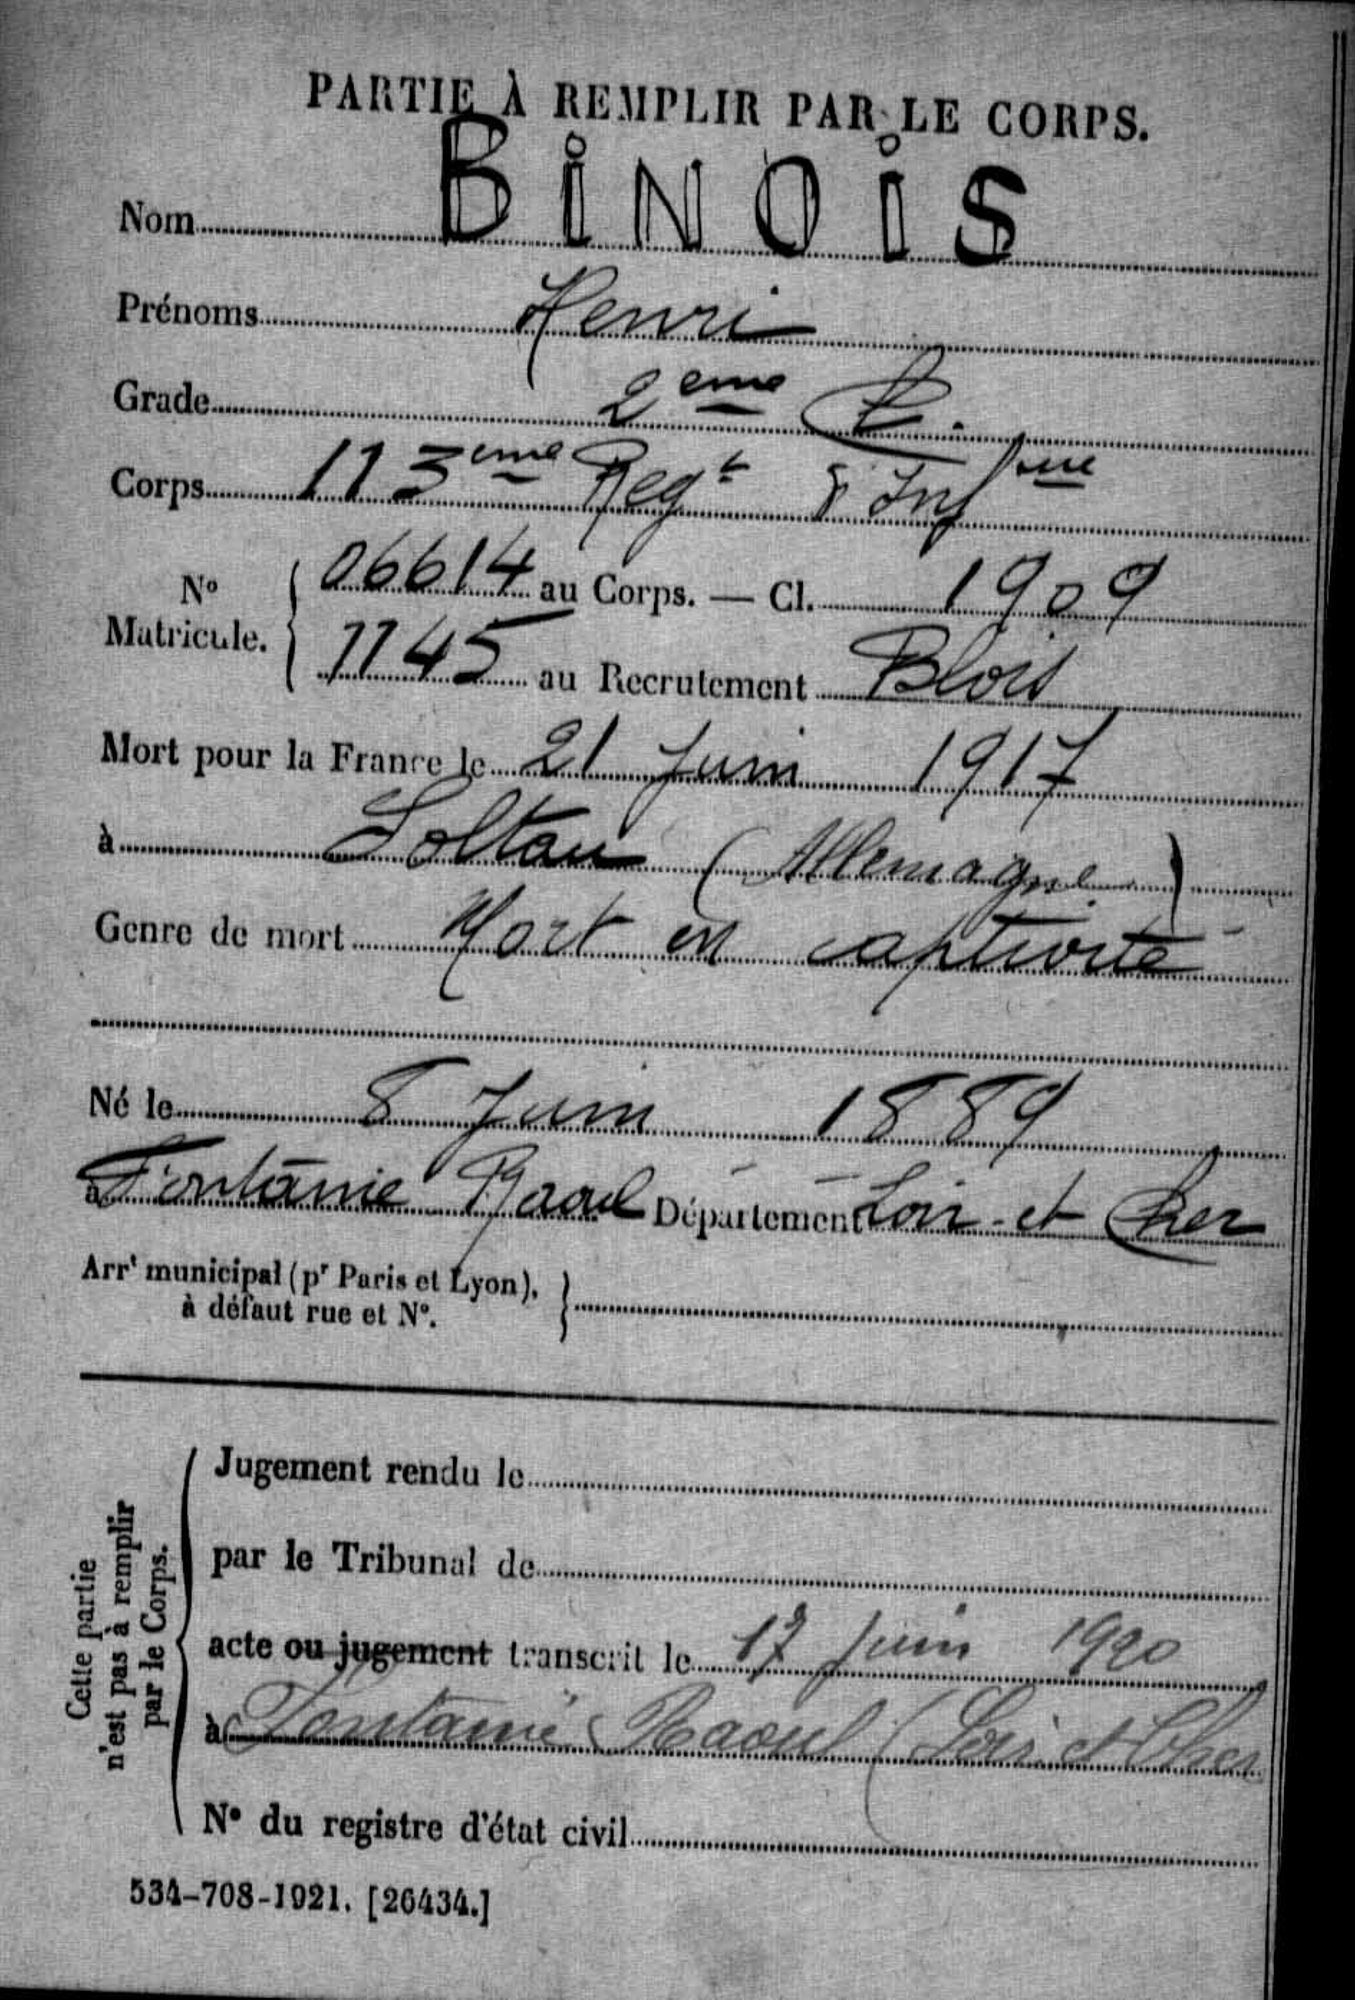 PARTIE À REMPLIR PAR LE CORPS.
Nom BiNOiS
Prénoms Henri
Grade 2eme C.
Corps 113eme Regt d'Infrie
No Matricule. 06614 au Corps. — Cl. 1909
1145 au Recrutement Blois
Mort pour la France le 21 Juin 1917
à Soltau (Allemagne)
Genre de mort Mort en captivité
Né le 8 Juin 1889
à Fontaine Raoul Département Loir-et Cher
Arrt municipal (pr Paris et Lyon),
à défaut rue et No.
Cette partie
n'est pas à remplir
par le Corps.
Jugement rendu le
par le Tribunal de
acte ou jugement transcrit le 17 Juin 1920
à Fontaine Raoul (Loir et Cher
No du registre d'état civil
534-708-1921. [26434.]